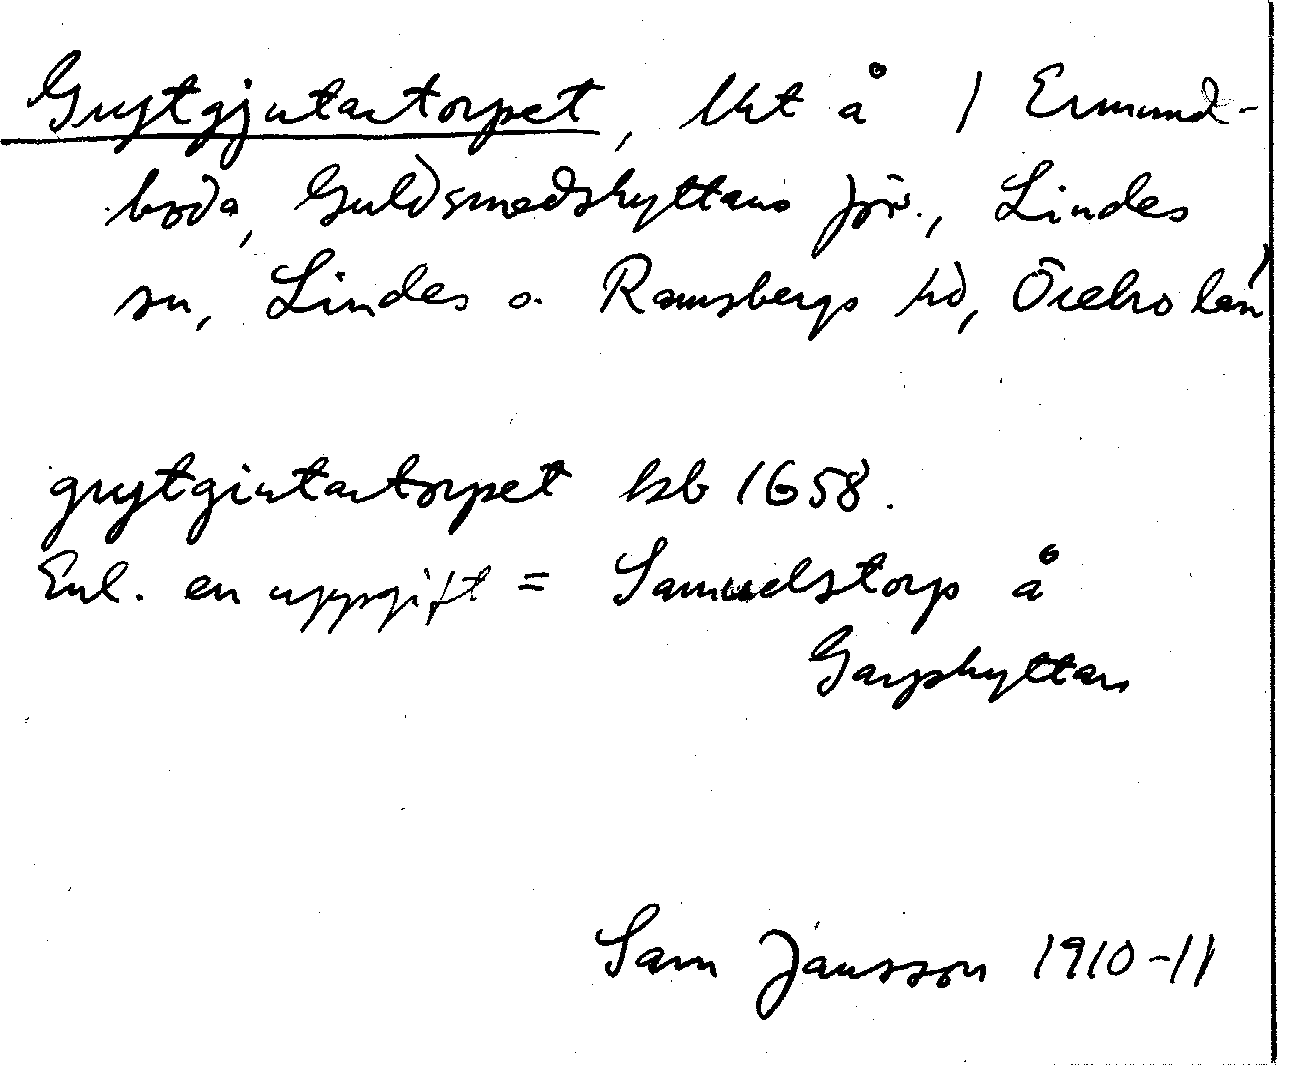 Grytgjutartorpet, lht å 1 Ermund-
boda, Guldsmedshyttansför., Lindes
sn, Lindes o. Ramsbergs hd, Örebro län
grytgiutartorpet kb 1658.
Enl. en uppgift = Samuelstorp å
Garphyttan
Sam Jansson 1910-11